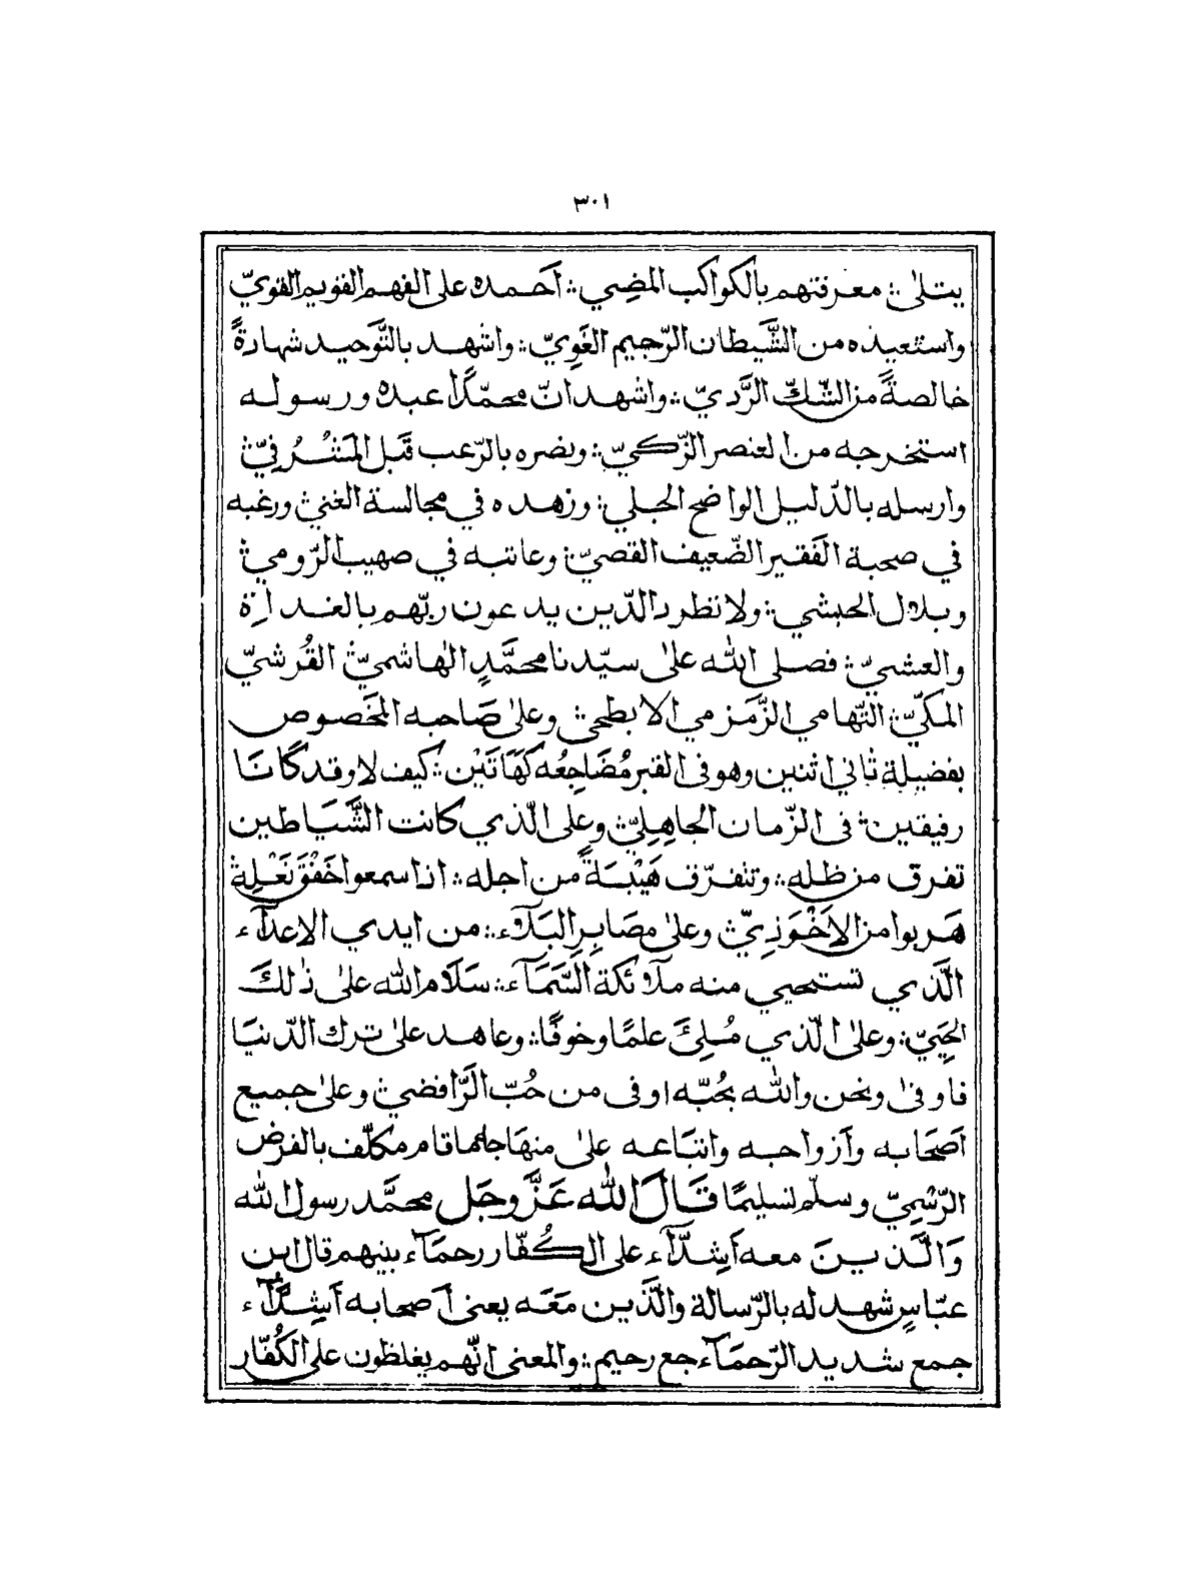 ٣٠١
يبتلى؛ معرفتهم بالكواكب المضي؛ أحمده على الفهم القويم القويّ
واستعيذه من الشَّيطان الرّجيم الغَوِيّ؛ واشهد بالتَّوحيد شهادةً
خالصةً من الشّكِّ الرَّديّ؛ واشهد انّ محمّدًا عبده ورسوله
استخرجه من العنصر الزّكيّ؛ ونصره بالرّعب قَبل المَشْرُفِيّ؛
وارسله بالدّليل الواضح الجلي؛ وزهده في مجالسة الغني؛ ورغبه
في صحبة الفَقير الضّعيف القصيّ؛ وعاتبه في صهيب الرّومي؛
وبلال الحبشي؛ ولا تطرد الذّين يدعون ربّهم بالغداة
والعشيّ؛ فصلى الله على سيّدنا محمَّدٍ الهاشميّ؛ القُرشيّ
المكيّ؛ التّهامي الزَّمزمي الابطحي؛ وعلى صَاحبه المخَصوص
بفضيلة ثاني اثنين وهو فى القبر مُضَاجِعُه كَهَاتَيْن؛ كيف لا وقد كَانَا
رفيقين؛ فى الزّمان الجاهِلِيّ؛ وعلى الّذي كانت الشَّيَاطين
تفرق من ظله؛ وتتفرّق هَيْبَةً من اجله؛ اذا سمعوا خَفْقَ نَعْلِهِ؛
هَربوا من الاَخْوَذِيّ؛ وعلى مصَابِرِ البَلآء؛ من ايدي الاعدآء
الَّذي تستحيي منه ملآئكة السَّمَآء؛ سَلَام الله على ذٰلكَ
الحَيِيّ؛ وعلى الّذي مُلِئَ علمًا وخوفًا؛ وعاهد على ترك الدّنيَا
فاوفى ونحن والله بحُبّه اوفى من حُبّ الرَّافضي؛ وعلى جميع
اَصحَابه وَاَزواجه واتبَاعه على منهَاجه ما قام مكلّف بالفرض
الرّسْمِيّ وسلّم تسليمًا قَالَ الله عَزَّ وجَل محمَّد رسول الله
وَالَّذينَ معه اَشِدَّآء على الكُفّار رحمَآء بينهم قال ابن
عبّاسٍ شهد له بالرّسالة والَّذين مَعَه يعنى اَصحابه اَشِدَّآء
جمع شديد الرّحمَآء جمع رحيم؛ والمعنى انّهم يغلظون على الكُفّار